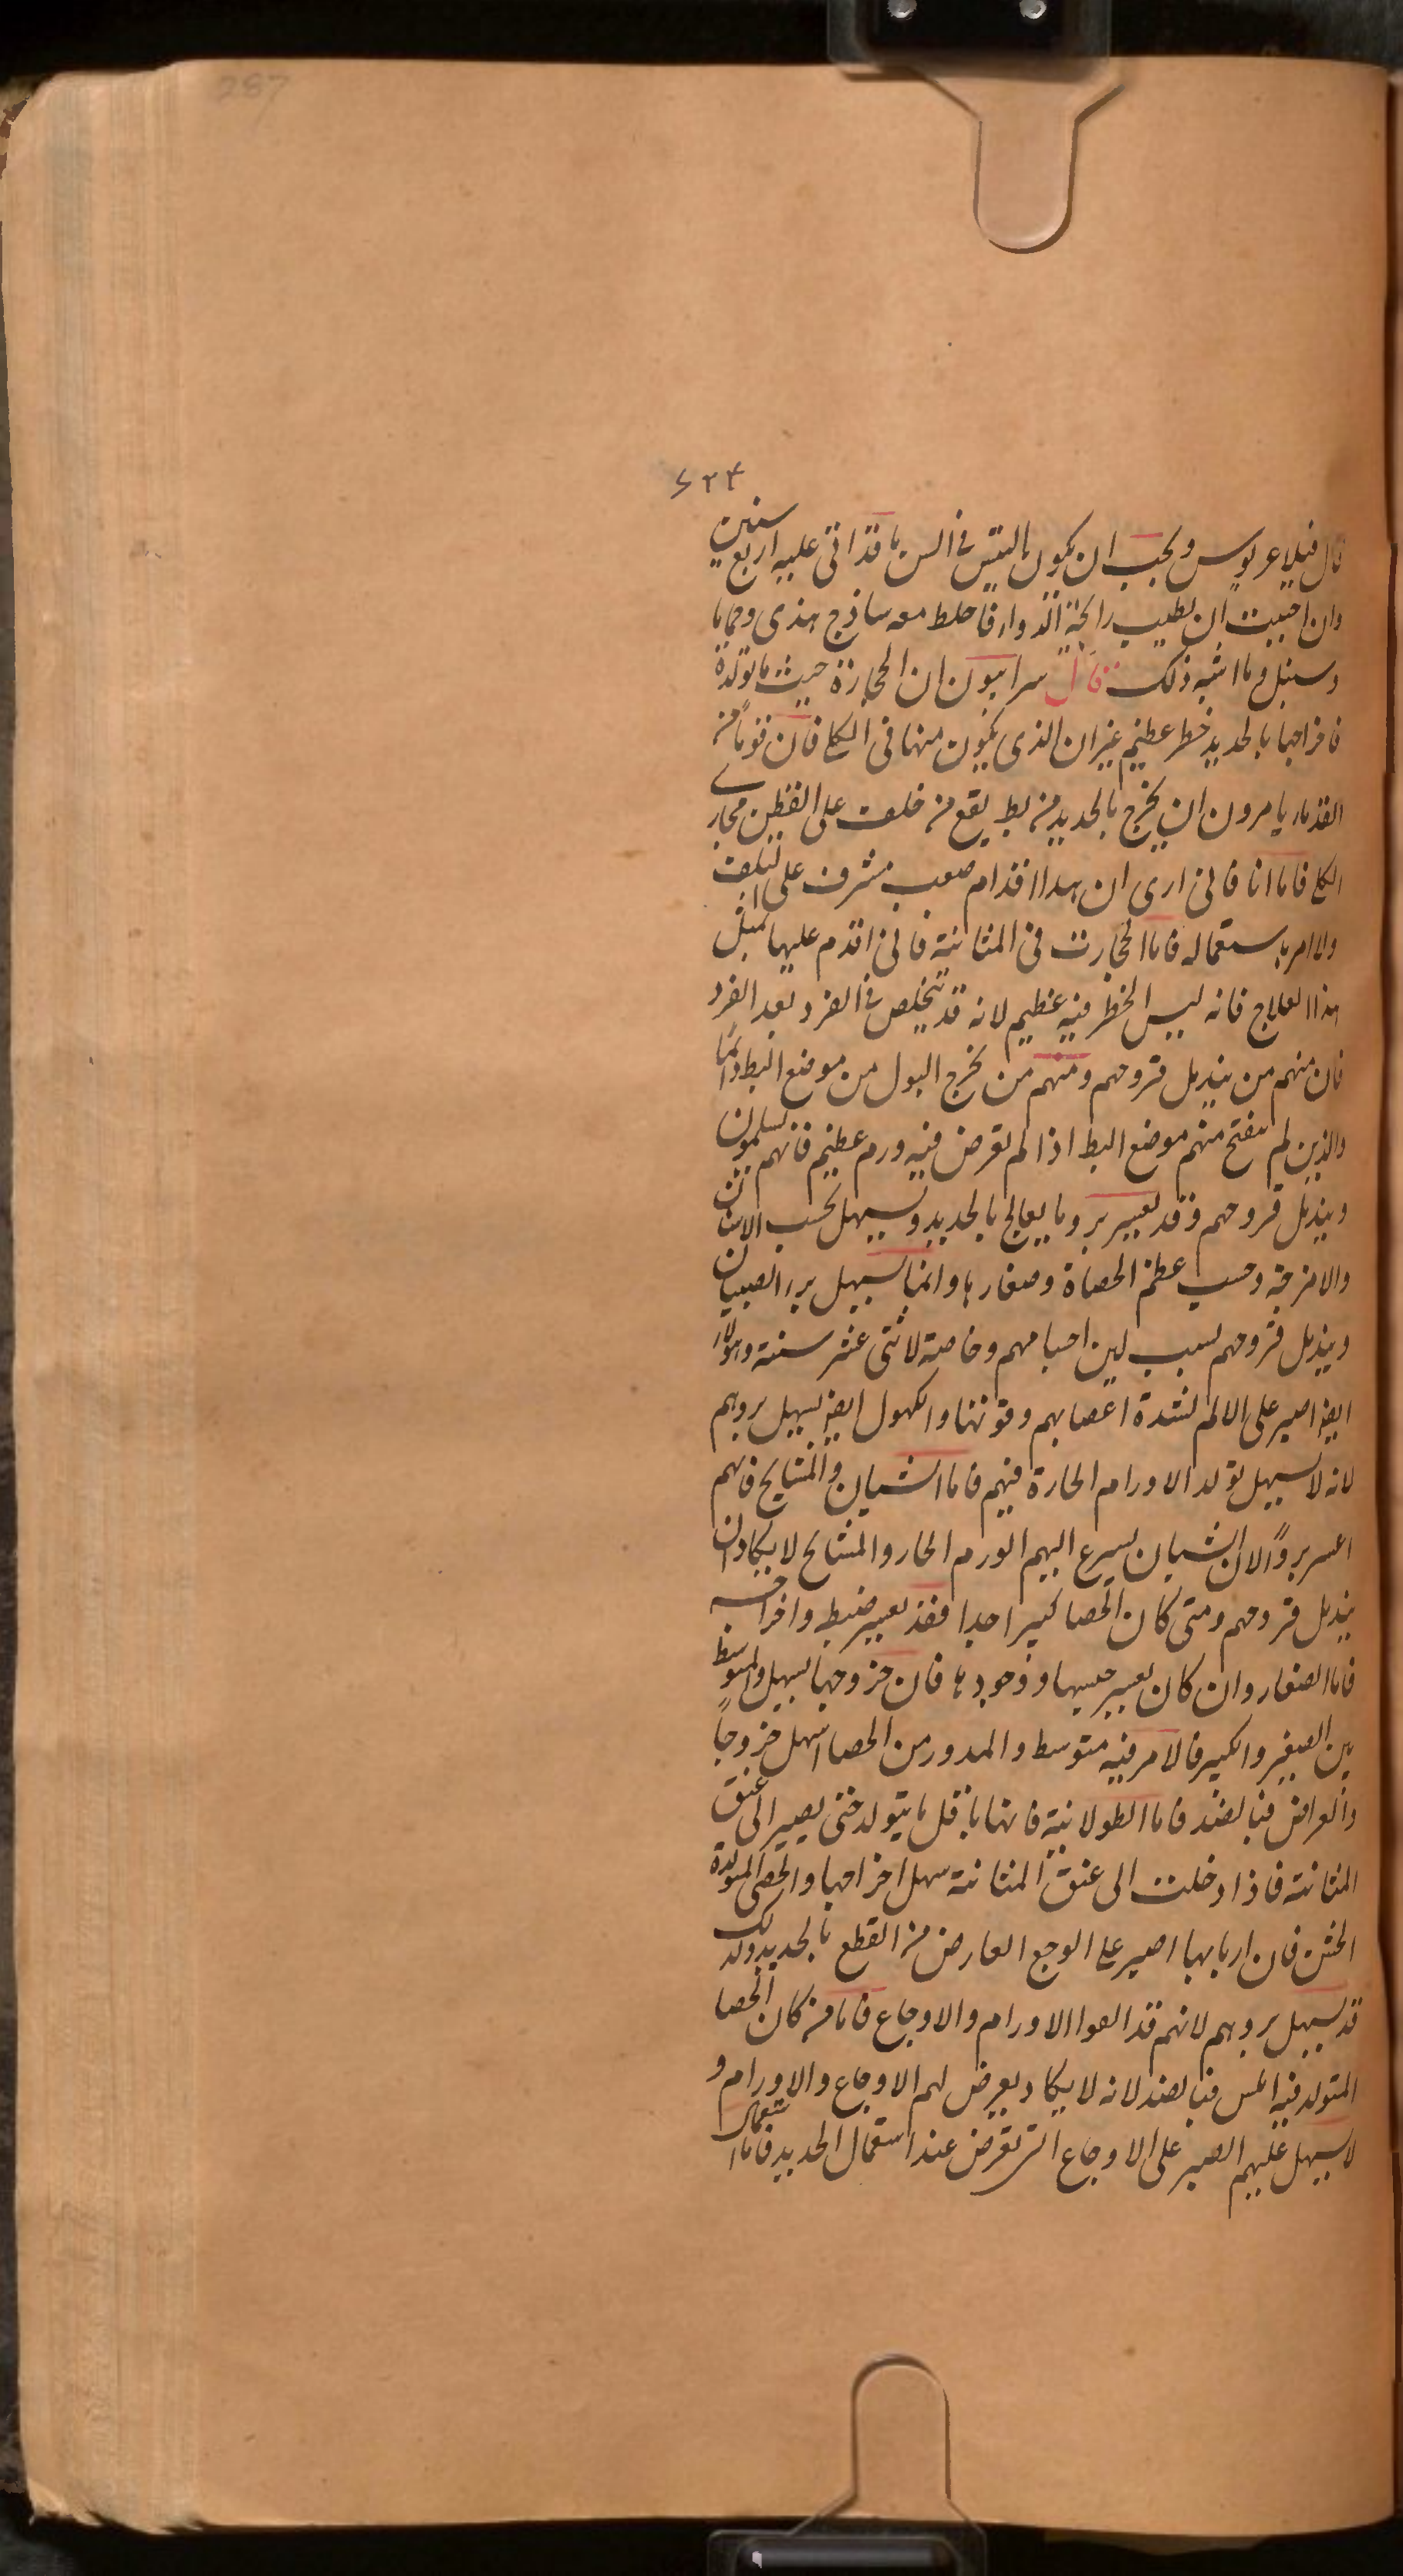 287
۶۲۴
قال فيلاغريوس ويجب ان يكون التيس فى السن ما قد اتى عليه اربع سنين
وان احببت ان تطيب رائحة الدواء فاخلط معه ساذج هندى وحماما
وسنبل وما اشبه ذلك قال سرابيون ان الحجارة حيث ما تولدة
فاخراجها بالحديد خطر عظيم غير ان الذى يكون منها فى الكلى فان قوماً من
القدماء يامرون ان يخرج بالحديد من بط يقع من خلف على القطن مجارے
الكلى فاما انا فانى ارى ان هذا اقدام صعب مشرف على التلف
ولا امر باستعماله فاما الحجارت فى المثانة فانى اقدم عليها بمثل
هذا العلاج فانه ليس الخطر فيه عظيم لانه قد يتخلص فى الفرد بعد الفرد
فان منهم من يندمل قروحهم ومنهم من يخرج البول من موضع البط دائماً
والذين لم ينفتح منهم موضع البط اذا لم تعرض فيه ورم عظيم فانهم يسلمون
ويندمل قروحهم وقد يعسر برو ما يعالج بالحديد ويسهل بحسب الاسنان
والامزجة وحسب عظم الحصاة وصغارها وانما يسهل برء الصبيان
ويندمل قروحهم بسبب لين اجسامهم وخاصة لاثنى عشر سنة وهولاء
ايض اصبر على الالم لشدة اعصابهم وقوتها والكهول ايض يسهل بروهم
لانه لا يسهل تولد الاورام الحارة فيهم فاما الشبان والمشايخ فانهم
اعسر بروًا لان الشبان يسرع اليهم الورم الحار والمشايخ لا يكادان
يندمل قروحهم ومتى كان الحصا كبيرا جدا فقد يعسر ضبطه واخراجه
فاما الصغار وان كان يعسر حبسها ووجودها فان خروجها يسهل والمتوسط
بين الصغير والكبير فالامر فيه متوسط والمدور من الحصا اسهل خروجاً
والعراض فبالضد فاما الطولانية فانها باقل ما يتولد حتى يصير الى عنق
المثانة فاذا دخلت الى عنق المثانة سهل اخراجها والحصى المتولدة
الخشن فان اربابها اصبر على الوجع العارض من القطع بالحديد ولذلك
قد يسهل بروهم لانهم قد الفوا الاورام والاوجاع فاما من كان الحصا
المتولد فيه املس فبالضد لانه لا يكاد يعرض لهم الاوجاع والاورام و
لا يسهل عليهم الصبر على الاوجاع التى تعرض عند استعمال الحديد فاما استعمال